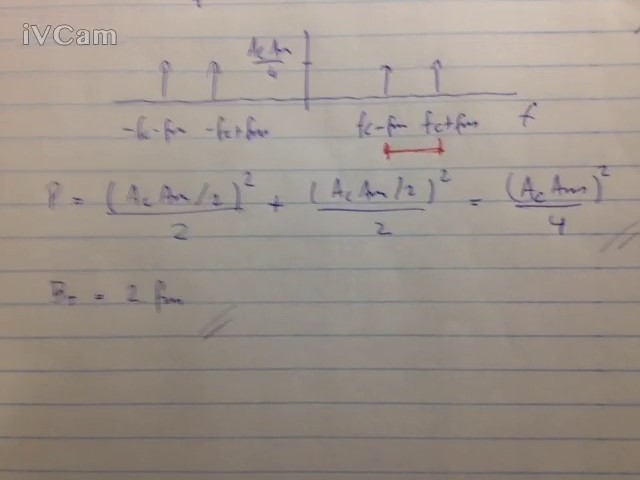 iVCam
AcAm
4
-fc-fm -fc+fm fc-fm fc+fm f
P = (Ac Am/2)² / 2 + (Ac Am/2)² / 2 = (Ac Am)² / 4
BT = 2 fm